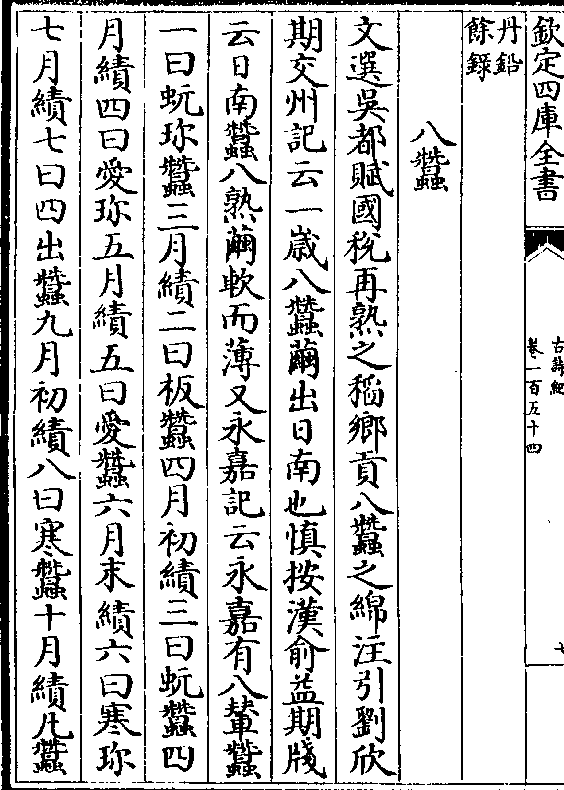 欽定四庫全書
古詩紀
卷一百五十四
七
丹鉛
餘録
八蠶
文選吳都賦國稅再熟之稻鄉貢八蠶之綿注引劉欣
期交州記云一歲八蠶繭出日南也慎按漢俞益期牋
云日南蠶八熟繭軟而薄又永嘉記云永嘉有八輩蠶
一曰蚖珍蠶三月績二曰柘蠶四月初績三曰蚖蠶四
月績四曰愛珍五月績五曰愛蠶六月末績六曰寒珍
七月績七曰四出蠶九月初績八曰寒蠶十月績凡蠶